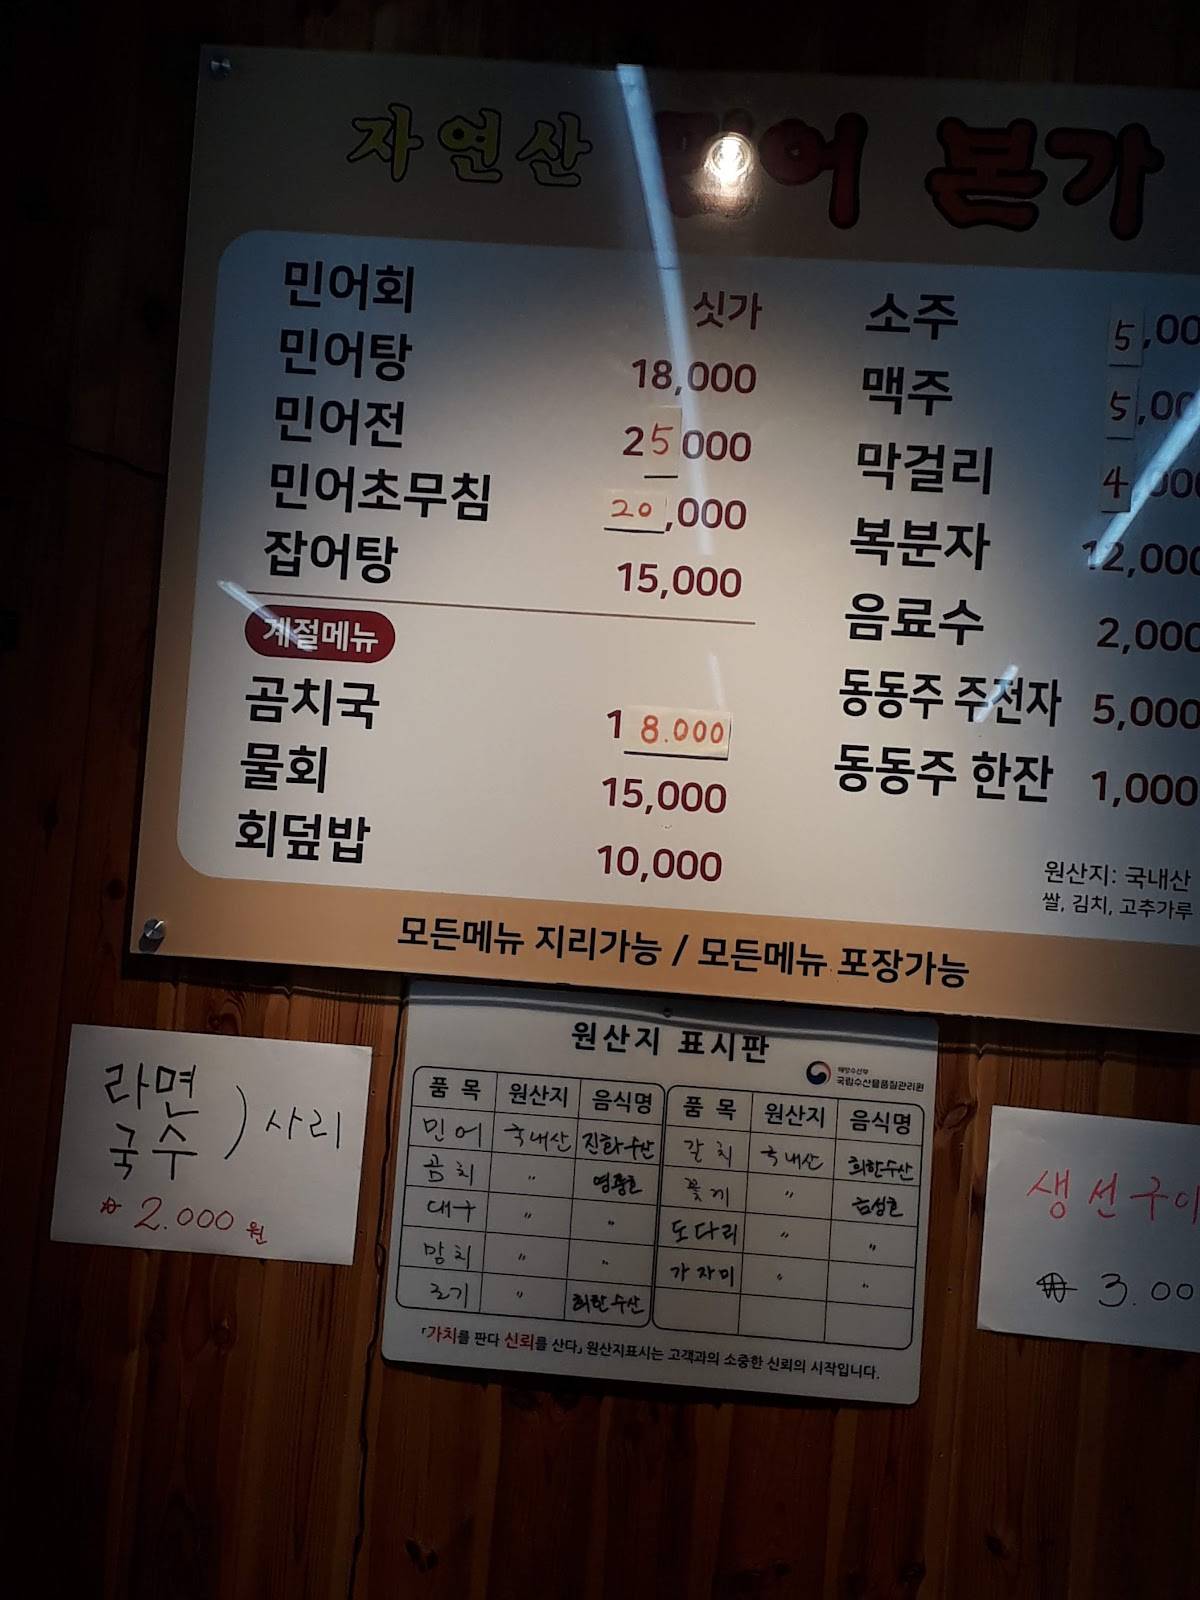 자연산 민어 본가
민어회 싯가
민어탕 18,000
민어전 25,000
민어초무침 20,000
잡어탕 15,000
계절메뉴
곰치국 18.000
물회 15,000
회덮밥 10,000
소주 5,00
맥주 5,00
막걸리 4,000
복분자 12,000
음료수 2,000
동동주 주전자 5,000
동동주 한잔 1,000
원산지: 국내산
쌀, 김치, 고추가루
모든메뉴 지리가능 / 모든메뉴 포장가능
라면
국수 ) 사리
₩ 2.000 원
원산지 표시판
해양수산부
국립수산물품질관리원
품 목 원산지 음식명 품 목 원산지 음식명
민어 국내산 진화수산 갈치 국내산 희한수산
곰치 〃 영광호 꽃게 〃
대구 〃 〃 도다리 〃 〃
맘치 〃 〃 가자미 〃 〃
조기 〃 희한수산
「가치를 판다 신뢰를 산다」 원산지표시는 고객과의 소중한 신뢰의 시작입니다.
생선구이
₩ 3.00